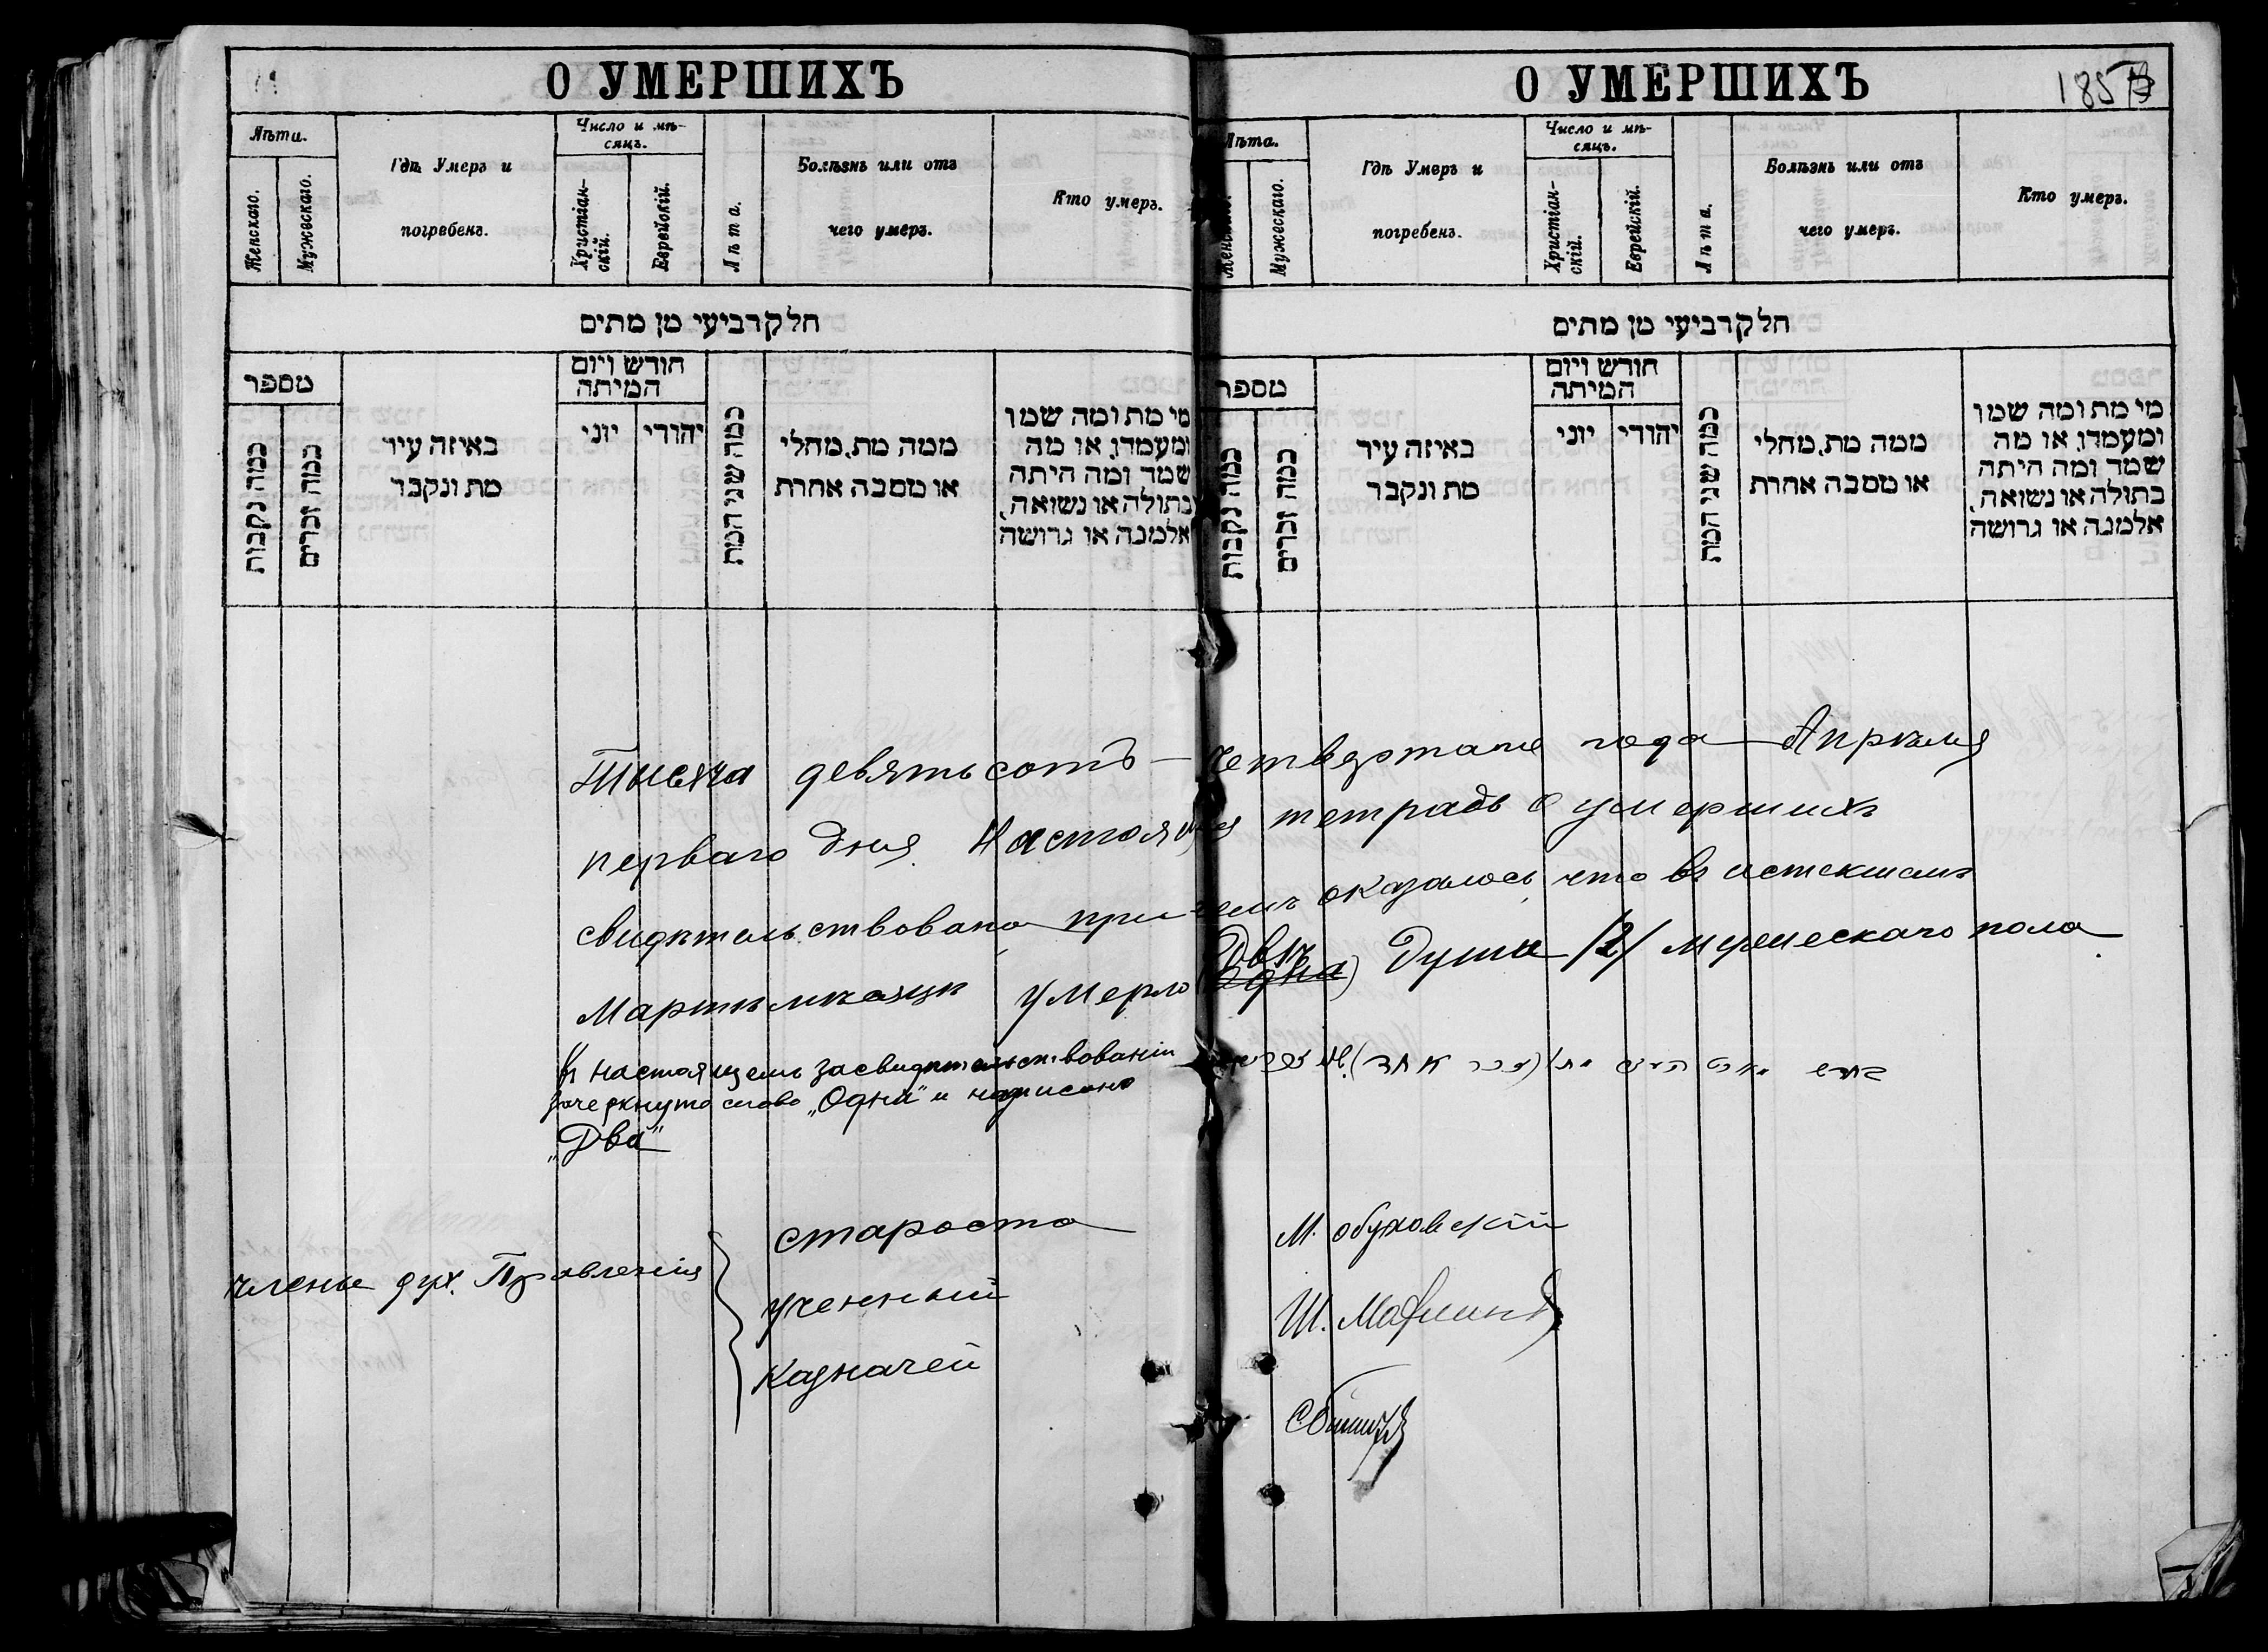 О УМЕРШИХЪ
Лѣта.
Женскаго.
Мужескаго.
Гдѣ Умеръ и
погребенъ.
Число и мѣ-
сяцъ.
Христіан-
скій.
Еврейскій.
Лѣта.
Болѣзнь или отъ
чего умеръ.
Кто умеръ.
חלק רביעי מן מתים
מספר
כמה נקבות
כמה זכרים
באיזה עיר
מת ונקבר
חורש ויום
המיתה
יוני
יהודי
כמה שני המת
ממה מת, מחלי
או מסבה אחרת
מי מת ומה שמו
ומעמדו, או מה
שמה ומה היתה
בתולה או נשואה,
אלמנה או גרושה
О УМЕРШИХЪ
185
Лѣта.
Женскаго.
Мужескаго.
Гдѣ Умеръ и
погребенъ.
Число и мѣ-
сяцъ.
Христіан-
скій.
Еврейскій.
Лѣта.
Болѣзнь или отъ
чего умеръ.
Кто умеръ.
חלק רביעי מן מתים
מספר
כמה נקבות
כמה זכרים
באיזה עיר
מת ונקבר
חורש ויום
המיתה
יוני
יהודי
כמה שני המת
ממה מת, מחלי
או מסבה אחרת
מי מת ומה שמו
ומעמדו, או מה
שמה ומה היתה
בתולה או נשואה,
אלמנה או גרושה
Тысяча девятьсотъ – четвертаго года Апрѣля
перваго дня. Настоящая тетрадь о умершихъ
свидѣтельствована причемъ оказалось, что въ истекшемъ
Мартѣ мѣсяцѣ умерло (Одна) Двѣ душа /2/ мужескаго пола
Въ настоящемъ засвидѣтельствованіи
зачеркнуто слово „Одна" и надписано
„Два"
члены дух. Правленія
староста
М. Обуховскій
ученный
Ш.
казначей